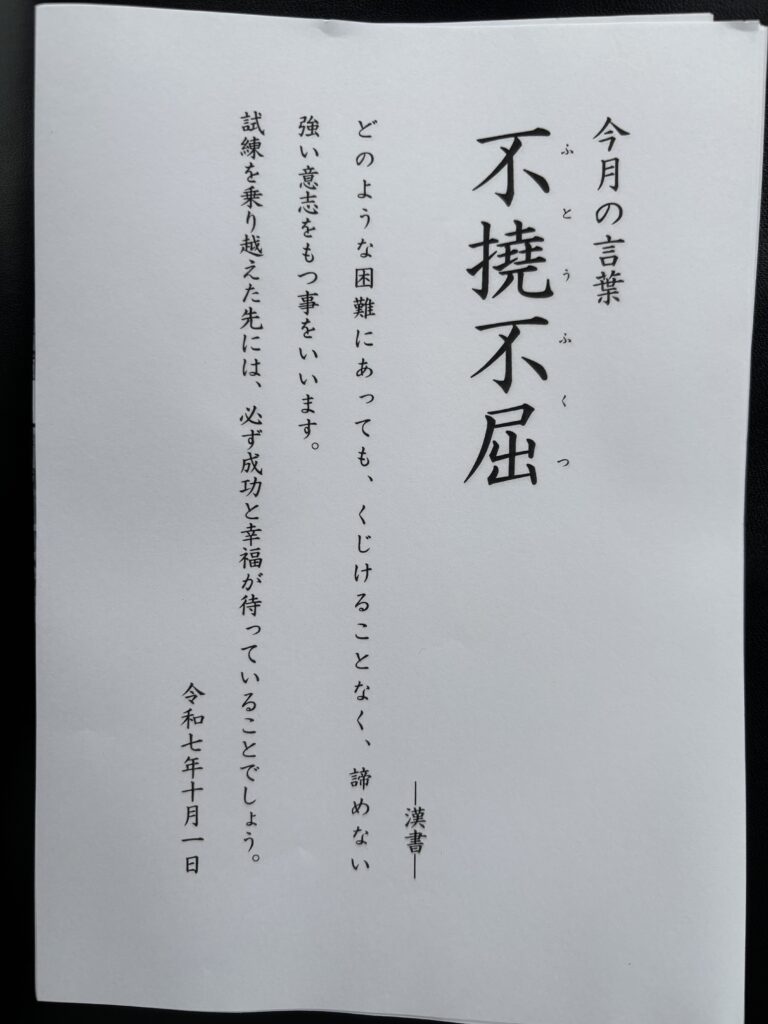 今月の言葉
不撓不屈
ふとうふくつ
―漢書―
どのような困難にあっても、くじけることなく、諦めない
強い意志をもつ事をいいます。
試練を乗り越えた先には、必ず成功と幸福が待っていることでしょう。
令和七年十月一日